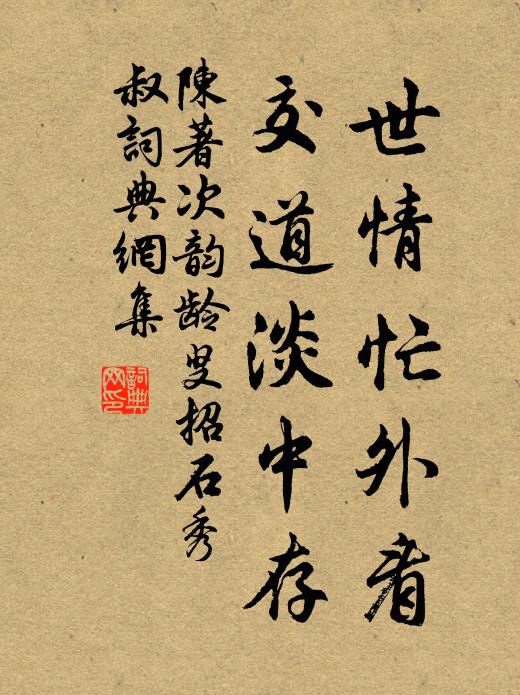 世情忙外看
交道淡中存
陳著次韵龄叟招石秀
叔詞典網集
詞典
网印